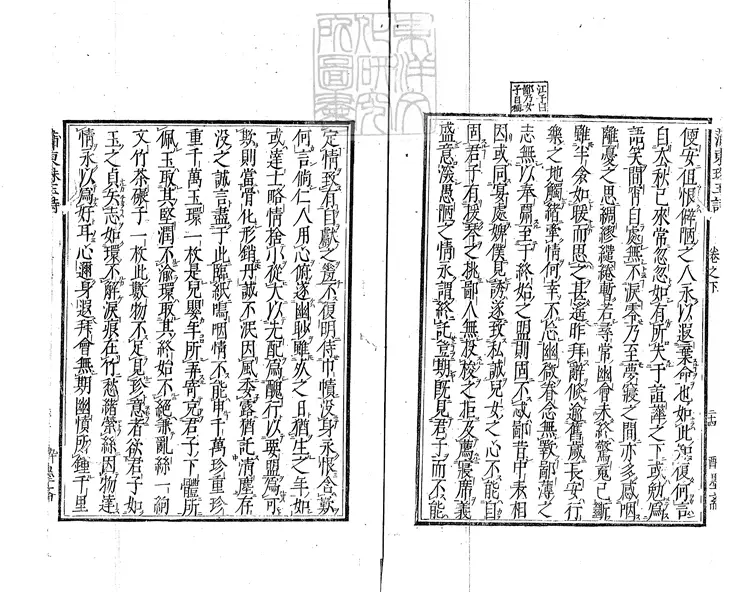 蒲東珠玉詩 卷之下
便安但恨僻陋之人永以遐棄命也如此知復何言
自去秋已來常忽忽如有所失于諠譁之下或勉為
語笑閒宵自處無不淚零乃至夢寢之間亦多感咽
離憂之思綢繆繾綣暫若尋常幽會未終驚魂已斷
雖半衾如暖而思之甚遙昨拜辭倏逾舊歲長安行
樂之地觸緒牽情何幸不忘幽微眷念無斁鄙薄之
志無以奉酬至于終始之盟則固不忒鄙昔中表相
因或同宴處婢僕見誘遂致私誠兒女之心不能自
固君子有援琴之挑鄙人無投梭之拒及薦寢席義
盛意深愚陋之情永謂終託豈期既見君子而不能
定情致有自獻之羞不復明侍巾幘沒身永恨含歎
何言倘仁人用心俯遂幽眇雖死之日猶生之年如
或達士略情捨小從大以先配為醜行以要盟為可
欺則當骨化形銷丹誠不泯因風委露猶託清塵存
沒之誠言盡于此臨紙嗚咽情不能申千萬珍重珍
重千萬玉環一枚是兒嬰年所弄寄充君子下體所
佩玉取其堅潤不渝環取其終始不絕兼亂絲一絇
文竹茶碾子一枚此數物不足見珍意者欲君子如
玉之貞矢志如環不解淚痕在竹愁緒縈絲因物達
情永以為好耳心邇身遐拜會無期幽憤所鍾千里
蒲東珠玉詩